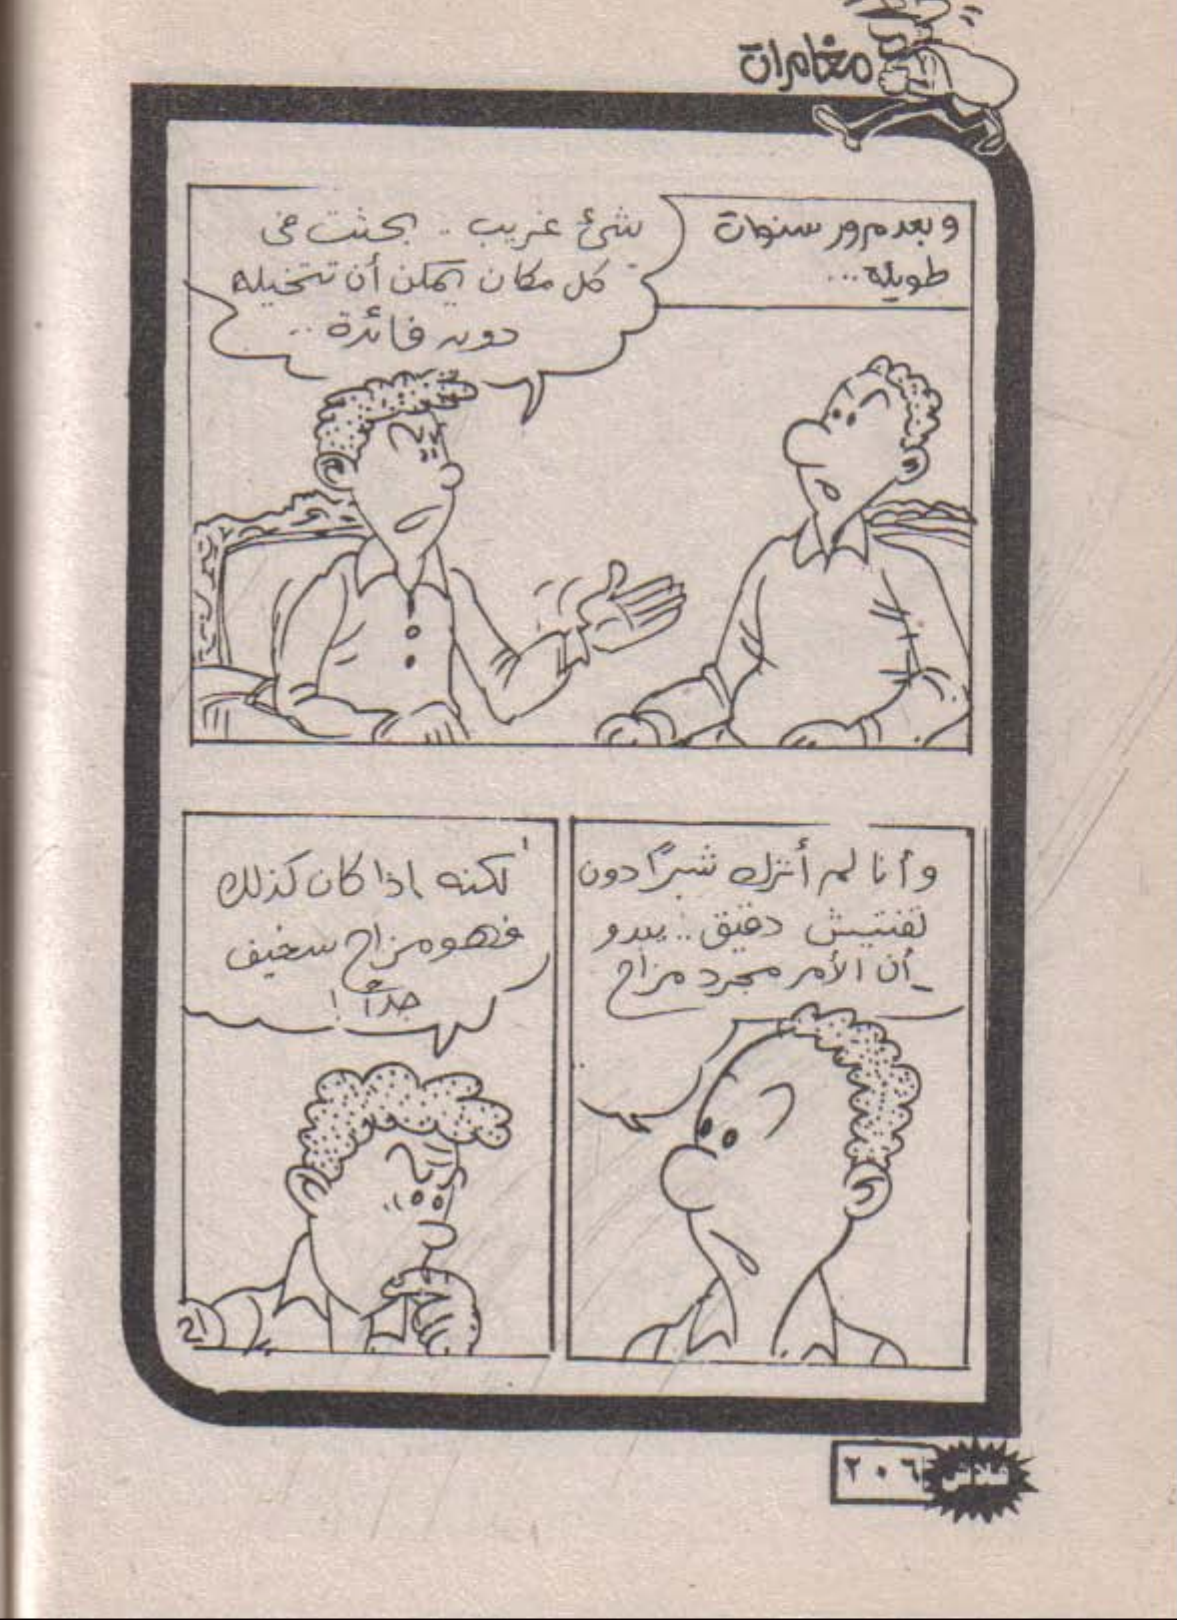 مغامرات
وبعد مرور سنوات
طويلة...
شئ غريب .. بحثت فى
كل مكان يمكن أن تتخيله
دون فائدة ..
وأنا لم أترك شبرًا دون
تفتيش دقيق .. يبدو
أن الأمر مجرد مزاح
لكنه إذا كان كذلك
فهو مزاح سخيف
جدًا !
فلاش
٢٠٦